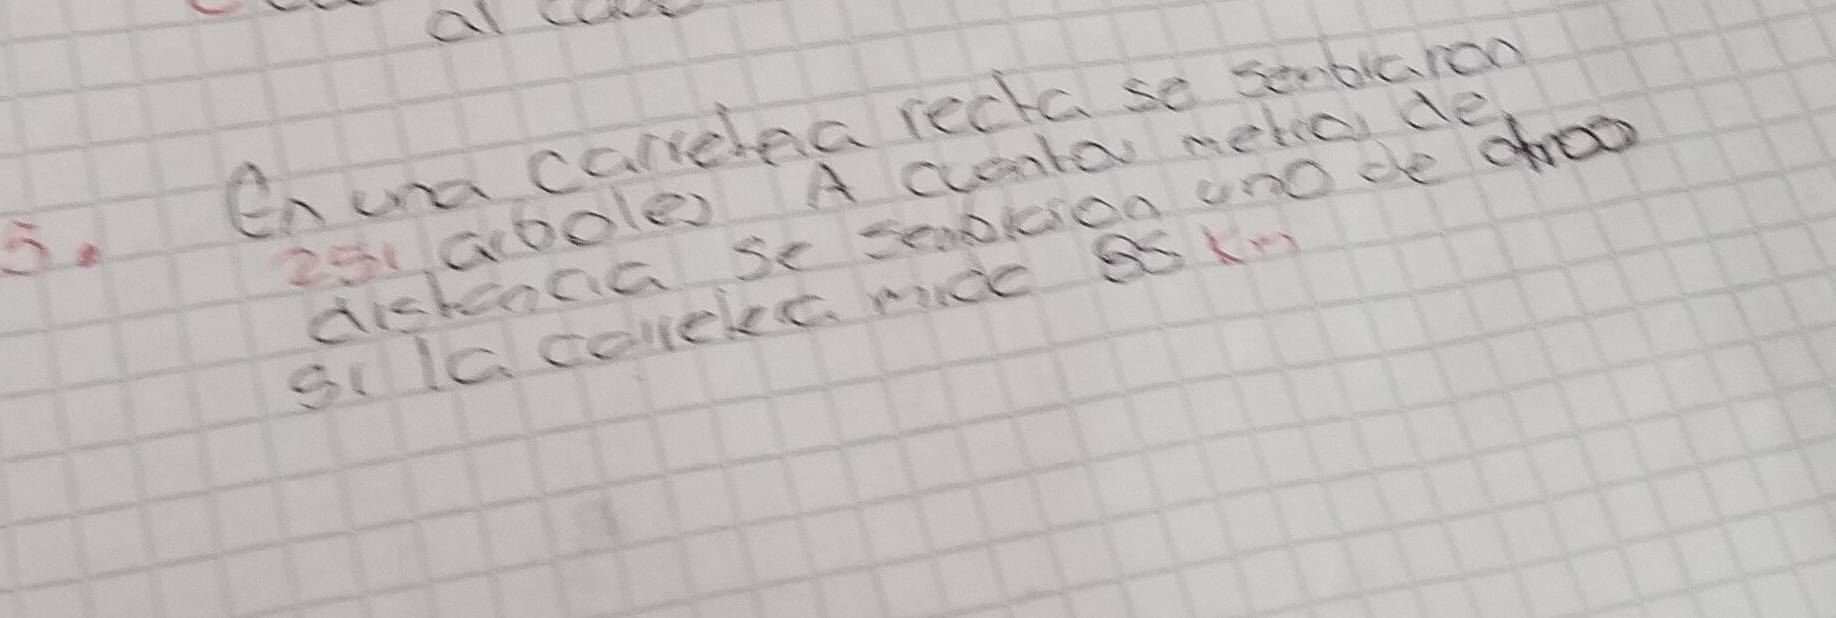 al
En una carretera recta se sembraron
5. 251 arboles A cuantos metros de
distancia se sembraron uno de otroo
si la carretera mide 85 km